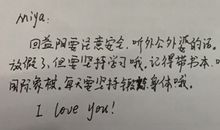 miya:
回益阳要注意安全,听外公外婆的话。
放假了,但要坚持学习哦,记得带书本、
国际象棋。每天要坚持锻炼身体哦。
I love you!